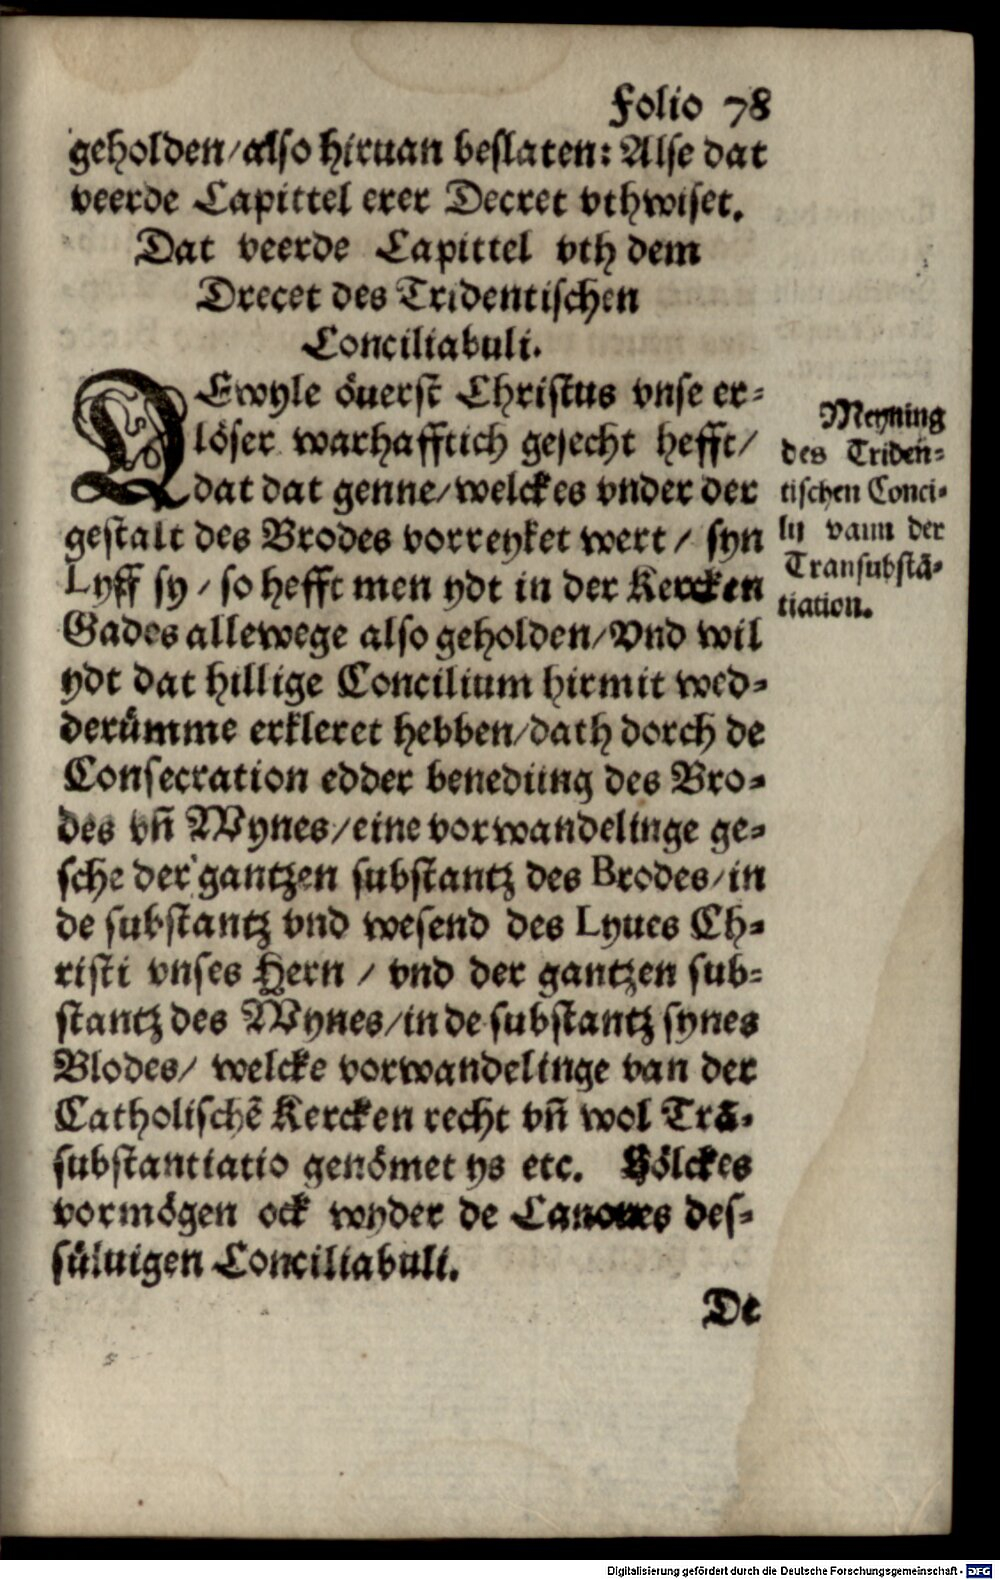 Folio 78
geholden/also hiruan beslaten: Alse dat
veerde Capittel erer Decret vthwiset.
Dat veerde Capittel vth dem
Drecet des Tridentischen
Conciliabuli.
DEwyle öuerst Christus vnse er=
löser warhafftich gesecht hefft/
dat dat genne/welckes vnder der
gestalt des Brodes vorreyket wert/ syn
Lyff sy/ so hefft men ydt in der Kercken
Gades allewege also geholden/Vnd wil
ydt dat hillige Concilium hirmit wed=
derümme erkleret hebben/dath dorch de
Consecration edder benediing des Bro=
des vn̄ Wynes/eine vorwandelinge ge=
sche der gantzen substantz des Brodes/in
de substantz vnd wesend des Lyues Ch=
risti vnses Hern / vnd der gantzen sub=
stantz des Wynes/in de substantz synes
Blodes/ welcke vorwandelinge van der
Catholischē Kercken recht vn̄ wol Trā=
substantiatio genömet ys etc. Sölckes
vormögen ock wyder de Canones des=
süluigen Conciliabuli.
De
Meyning
des Triden=
tischen Conci=
lij vann der
Transubstā=
tiation.
Digitalisierung gefördert durch die Deutsche Forschungsgemeinschaft - DFG